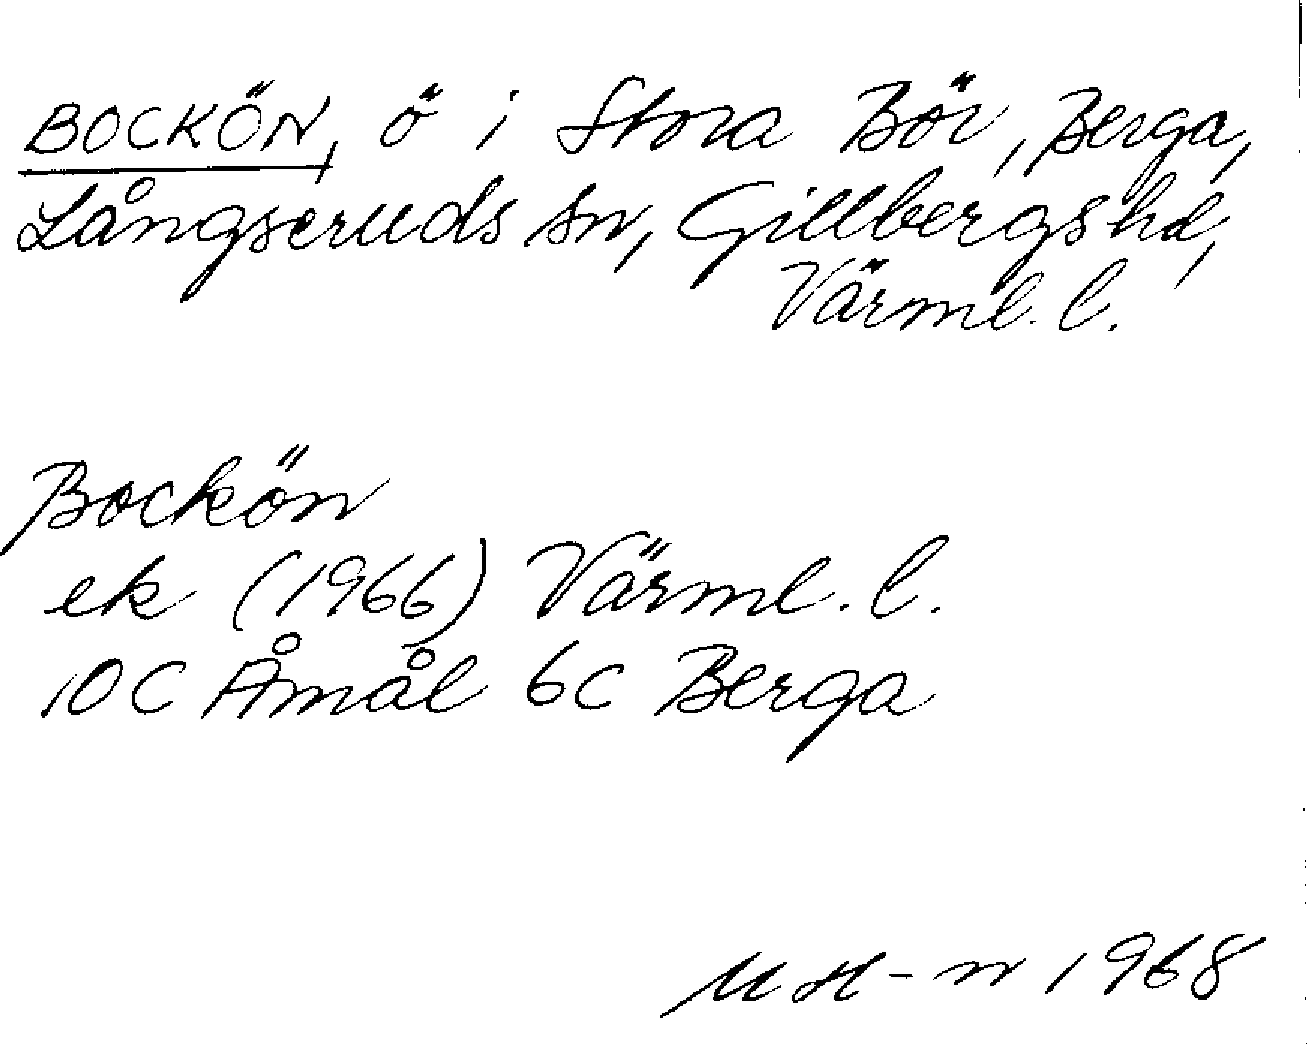 BOCKÖN, ö i Stora Bör, Berga,
Långseruds sn, Gillbergs hd,
Värml. l.
Bockön
ek (1966) Värml. l.
10C Åmål 6c Berga
MH-n 1968